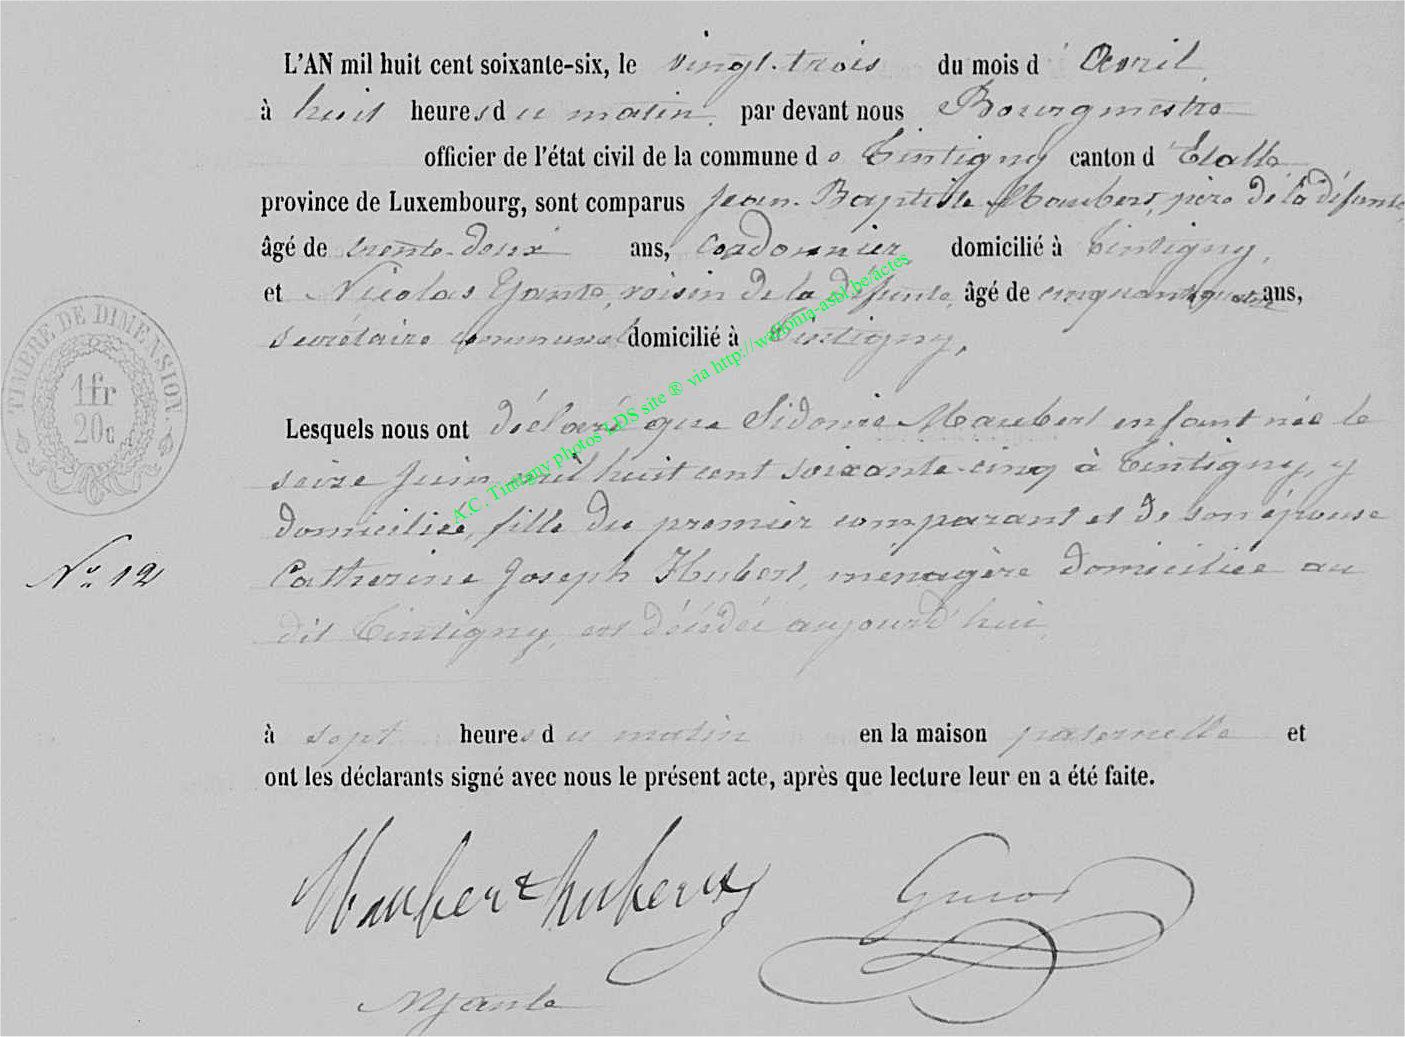 L'AN mil huit cent soixante-six, le vingt-trois du mois d'Avril
à huit heures du matin, par devant nous Bourgmestre
officier de l'état civil de la commune de Tintigny canton d'Etalle
province de Luxembourg, sont comparus Jean-Baptiste Maubert, père de la défunte,
âgé de trente-deux ans, Cordonnier domicilié à Tintigny,
et Nicolas Yante, voisin de la défunte, âgé de cinquante quatre ans,
secrétaire communal domicilié à Tintigny,
TIMBRE DE DIMENSION.
1fr
20c
Lesquels nous ont déclaré que Sidonie Maubert enfant née le
seize Juin mil huit cent soixante-cinq à Tintigny, y
domiciliée, fille du premier comparant et de son épouse
Nº 12
Catherine Joseph Hubert, ménagère domiciliée au
dit Tintigny, est décédée aujourd'hui,
à sept heures du matin en la maison paternelle et
ont les déclarants signé avec nous le présent acte, après que lecture leur en a été faite.
Maubert huberty
NYante
A.C. Tintigny photos LDS site ® via http://wallonia-asbl.be/actes